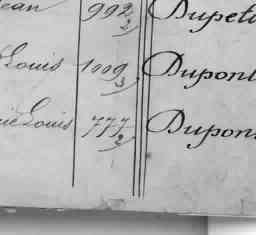 ean 992/2 Dupeti
Louis 1009/3 Dupont
ie Louis 777/2 Dupons